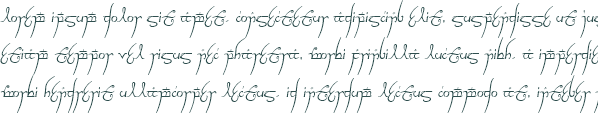 lorem ipsum dolor sit amet, consectetur adipiscing elit, suspendisse ut jus
etiam tempor vel risus nec pharetra, morbi fringilla luctus nibh, a imperdie
morbi hendrerit ullamcorper lectus, id interdum lectus commodo at, integer